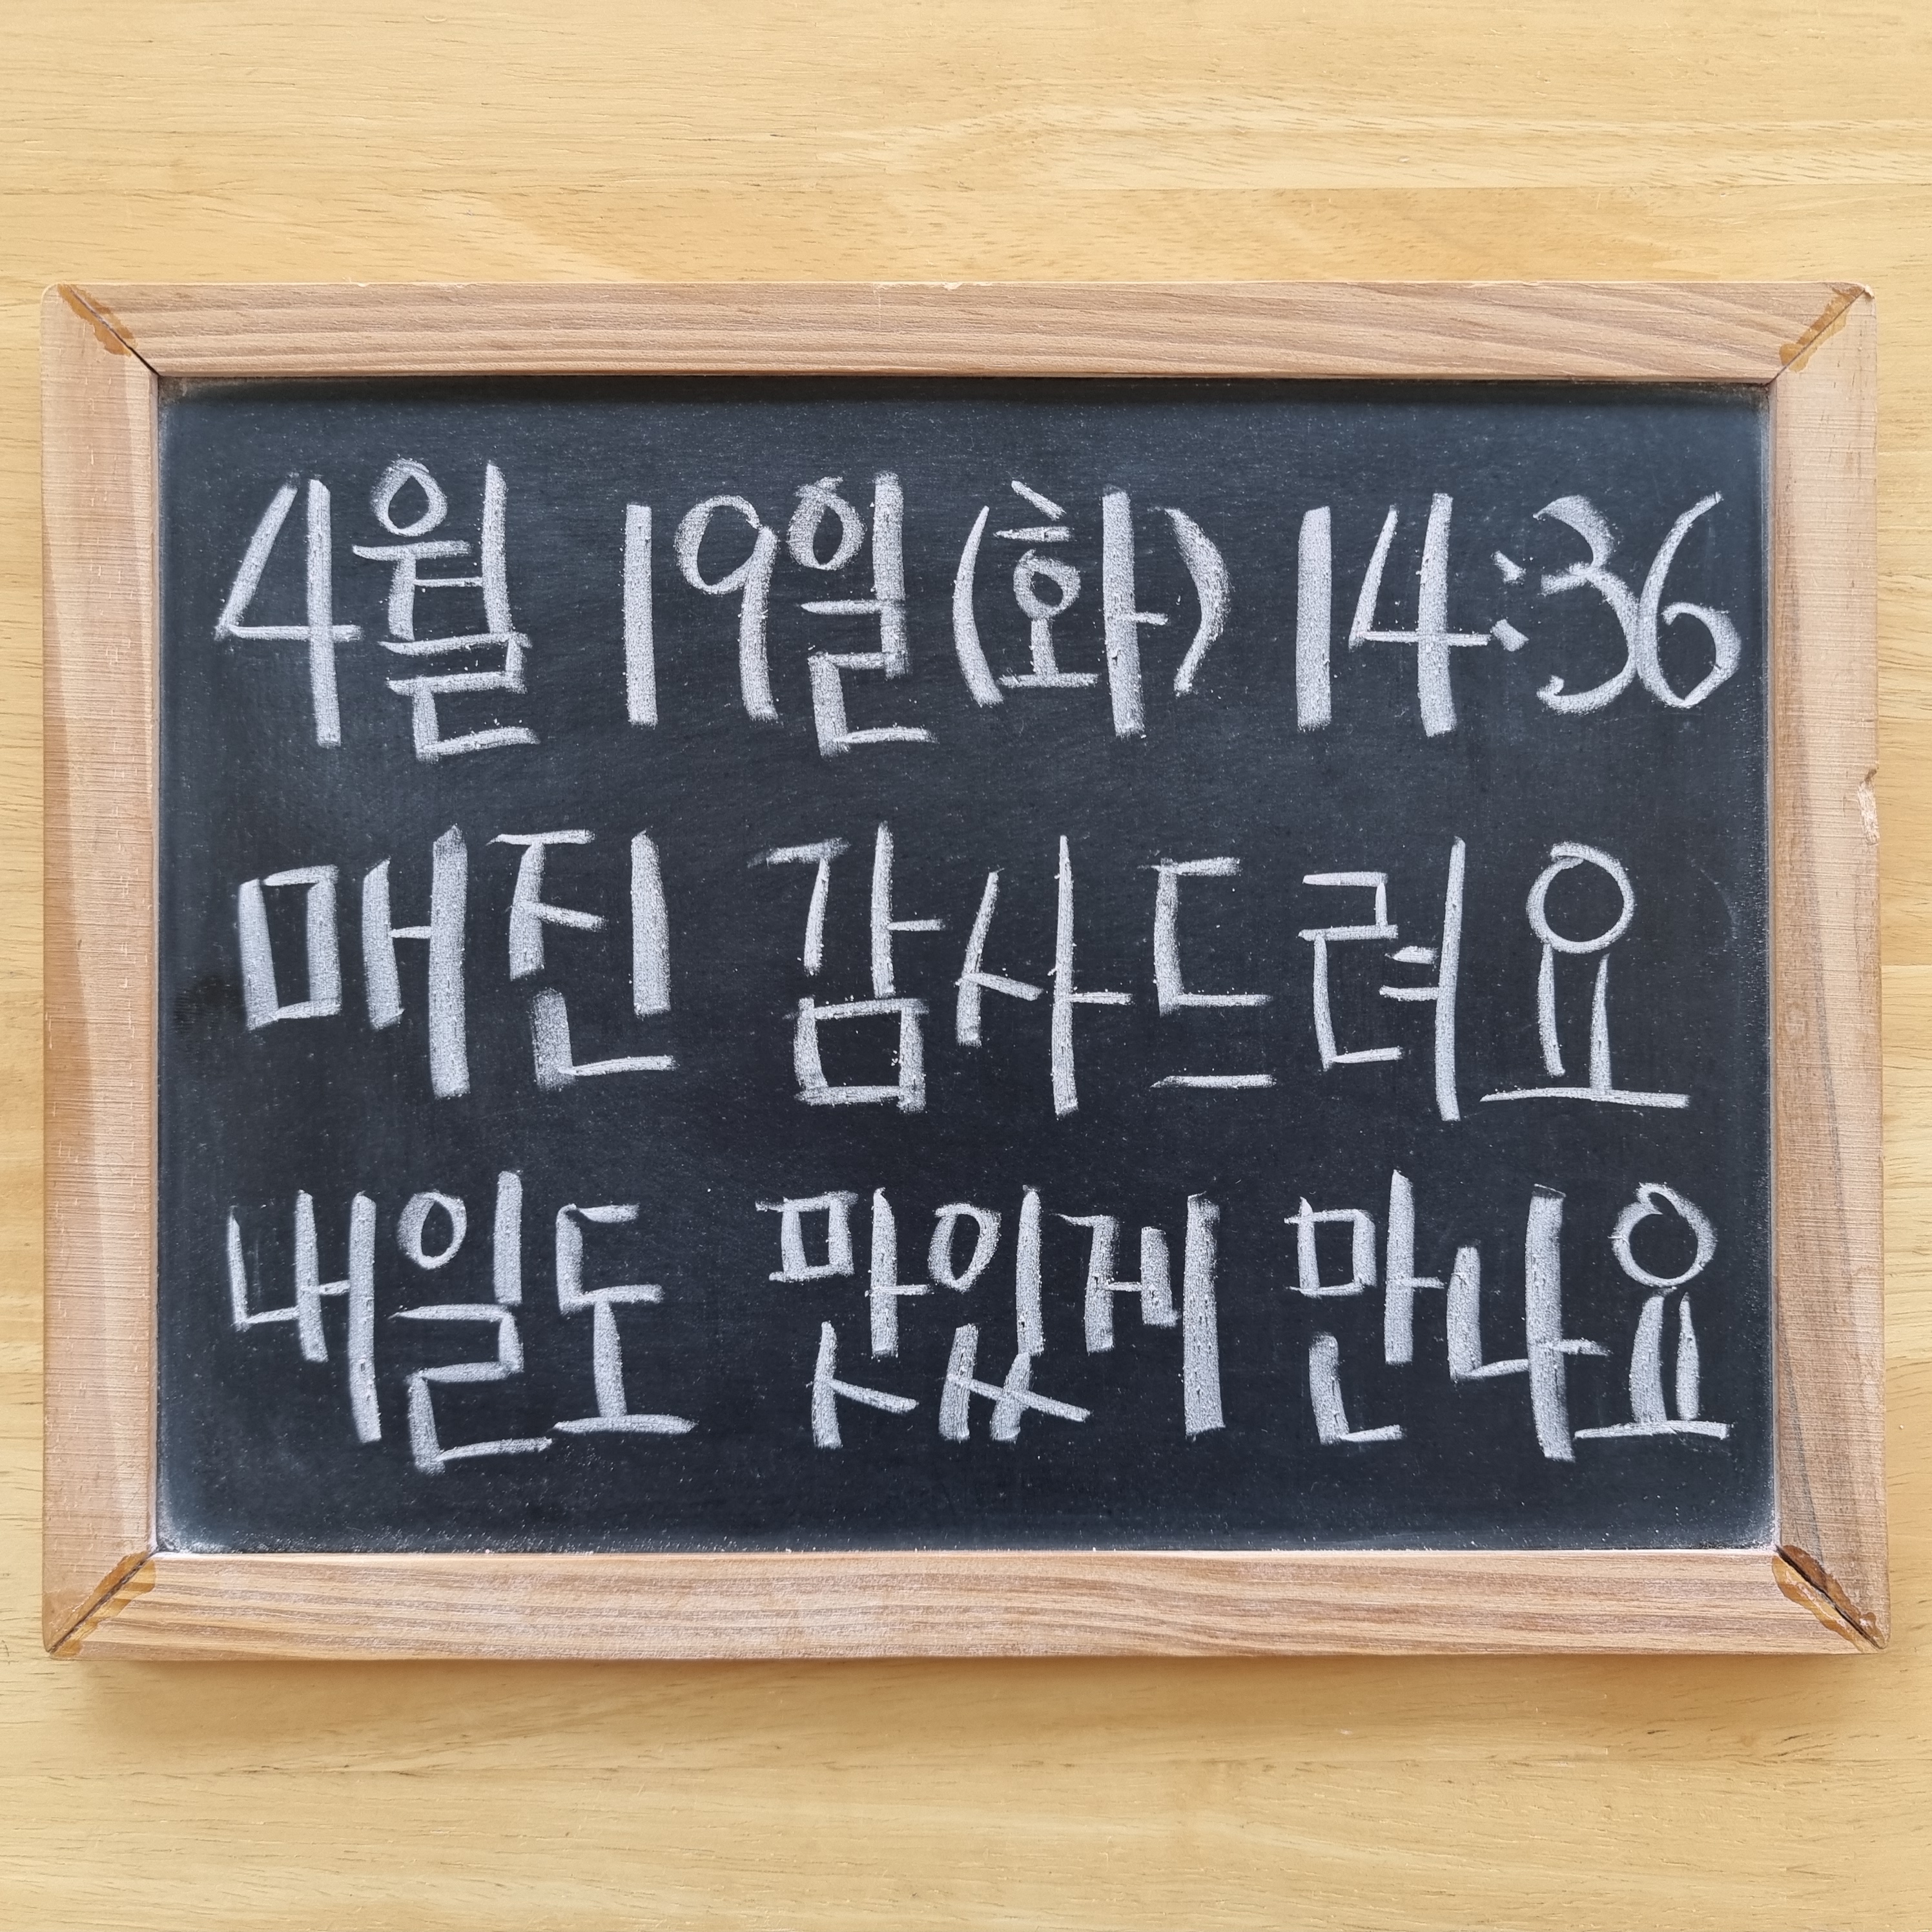 4월 19일(화) 14:36
매진 감사드려요
내일도 맛있게 만나요